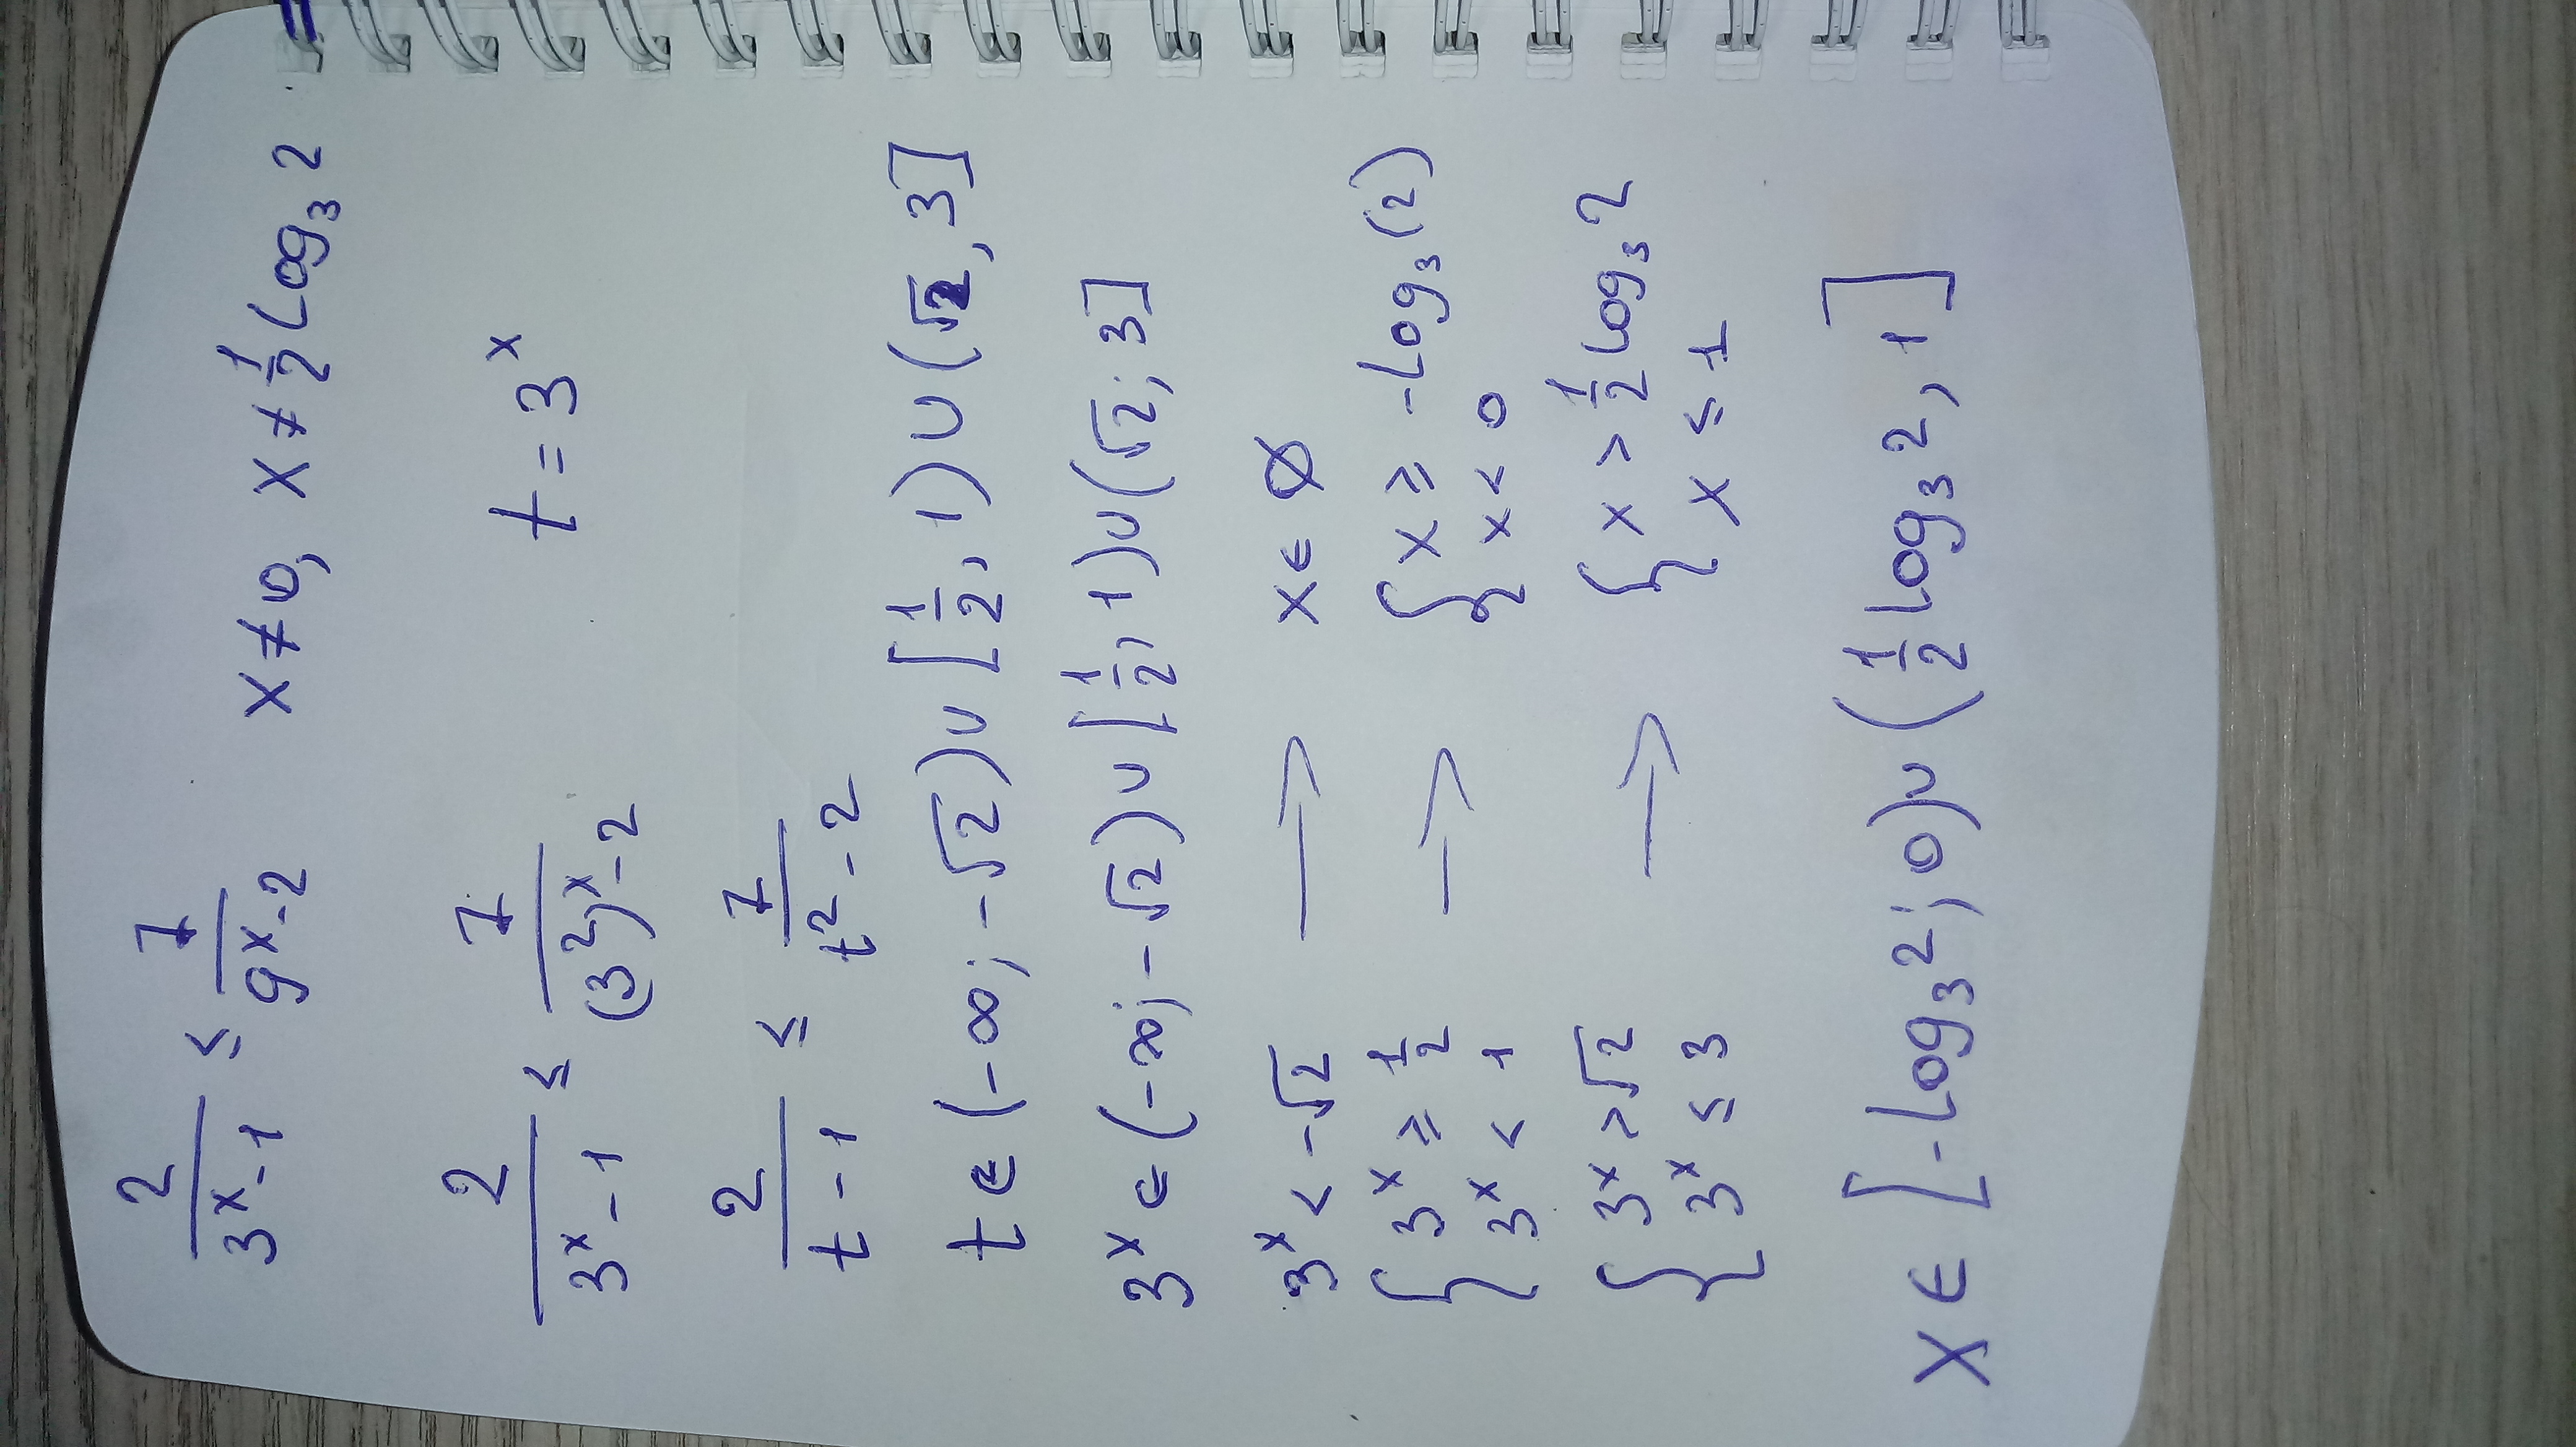 2/(3^x-1) ≤ 1/(9^x-2) x≠0, x≠1/2 Log₃2
2/(3^x-1) ≤ 1/((3²)^x-2) t=3^x
2/(t-1) ≤ 1/(t²-2)
t∈(-∞;-√2)∪[1/2,1)∪(√2,3]
3^x∈(-∞;-√2)∪[1/2,1)∪(√2;3]
3^x<-√2 → x∈∅
{3^x≥1/2 → {x≥-Log₃(2)
3^x<1 x<0
{3^x>√2 → {x>1/2 Log₃2
3^x≤3 x≤1
x∈[-Log₃2;0)∪(1/2 Log₃2,1]